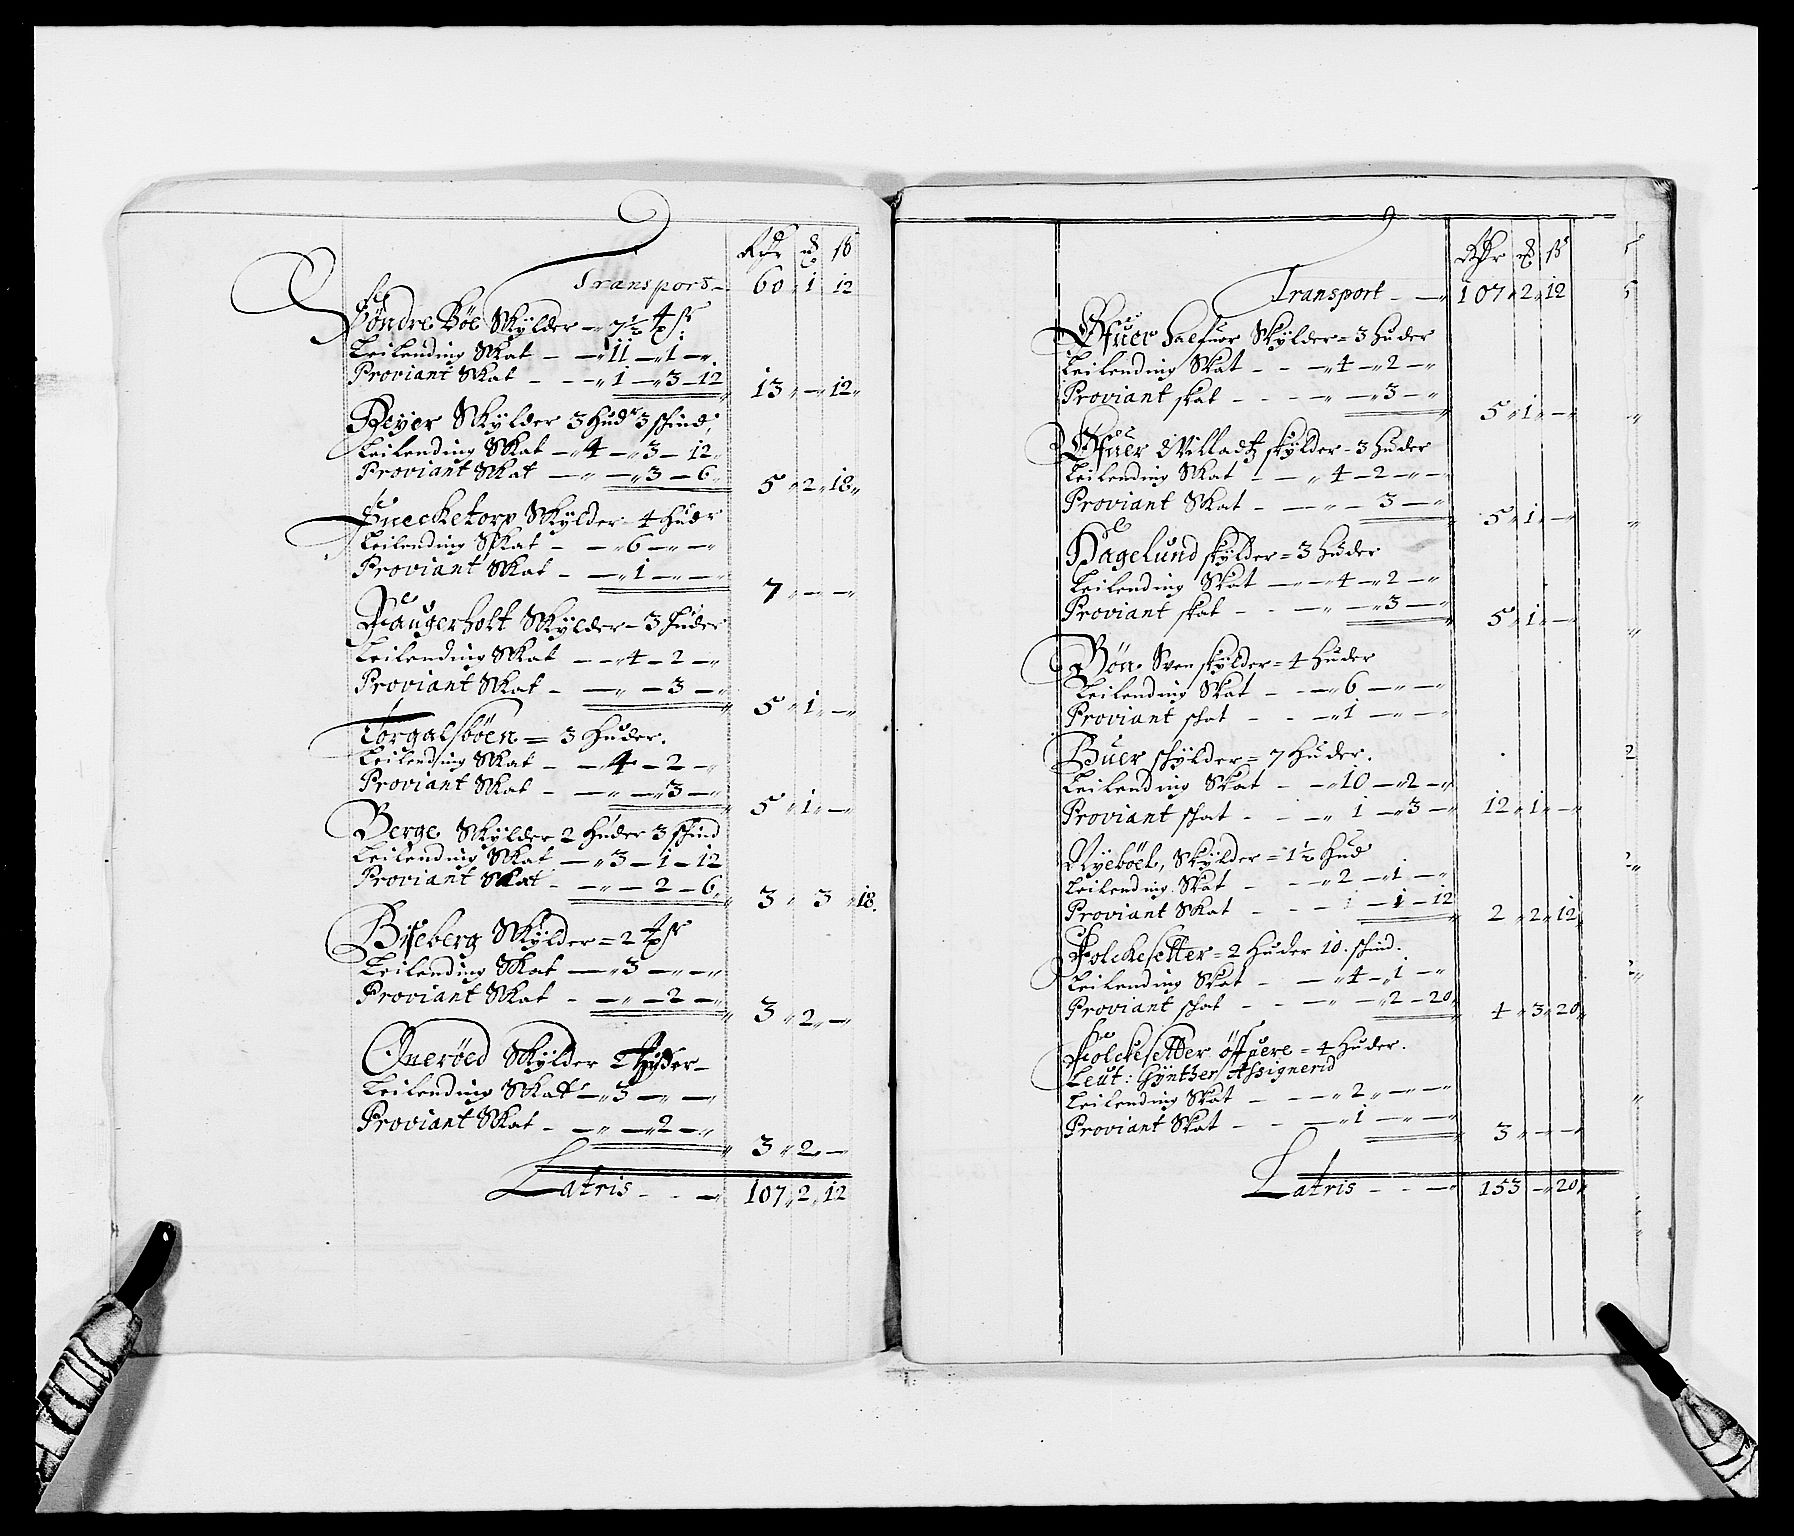 Rdr ß
Transport – 60 „ 1 „ 12
Söndre Böe Skylder – 7½
Leilending Skat – – „ 11 – „ 1 – „
Proviant Skat – – – „ 1 – „ 3 – 12 13 „ – „ 12 „
Reyer Skylder 3 Hudr 3 skind,
Leilending Skat – „ 4 – „ 3 – 12 „
Proviant Skat – „ – „ 3 – 6 „ 5 „ 2 „ 18 „
Sneeketorp Skylder – 4 hudr
Leilending Skat – – „ 6 – „ – „
Proviant Skat – – „ 1 – „ – „ 7 „ – „ – „
Haugerholt Skylder – 3 huder
Leilending Skat – – „ 4 – 2 – „
Proviant Skat – – „ – 3 – „ 5 „ 1 „ – „
Torgalsböen = 3 Huder.
Leilending Skat – – „ 4 – 2 – „
Proviant Skat – – „ – „ 3 – „ 5 „ 1 „ – „
Berge Skylder 2 huder 3 skind
Leilending Skat – „ 3 – 1 – 12
Proviant Skat – – „ – 2 – 6 „ 3 „ 3 „ 18.
Biseberg Skylder = 2
Leilending Skat – „ 3 – „ – „
Proviant Skat – – „ – 2 – „ 3 „ 2 „ – „
Queröed Skylder 2 Huder –
Leilending Skat – „ 3 – „ – „
Proviant Skat – – „ – „ 2 – „ 3 „ 2 „ –
Latris – – – „ 107 „ 2 „ 12
Rdr ß
Transport – – „ 107 „ 2 „ 12
Ofuer Halfuor Skylder = 3 huder
Leilending Skat – – – „ 4 – „ 2 – „
Proviant skat – – – – „ – „ 3 – „ 5 „ 1 „ – „
Ofuer Villadtz skylder – 3 huder
Leilending Skat – – – „ 4 – 2 – „ – „
Proviant Skat – – – „ – 3 – „ 5 „ 1 „ – „
Hagelund skylder = 3 huder
Leilending Skat – „ – „ 4 – „ 2 – „
Proviant skat – – – „ – „ 3 – „ 5 „ 1 „ – „
Bön Sven skylder = 4 huder
Leilending Skat – – – „ 6 – „ – „
Proviant skat – – – „ 1 – „ – „
Buer skylder = 7 huder.
Leilending Skat – – „ 10 – „ 2 – „
Proviant skat – – – „ 1 – „ 3 – „ 12 „ 1 „ – „
Nyeböel, Skylder = 1½ hud
Leilending Skat – – – „ 2 – „ 1 – „
Proviant Skat – – – 1 – 1 – 12 2 „ 2 „ 12
Folckesetter = 2 huder 10. skind.
Leilending Skat – – „ 4 – „ 1 – „
Proviant skat – – – „ – „ 2 – 20 „ 4 „ 3 „ 20 „
Folckesetter öffuere = 4 huder.
Leut: Gynther Assignerid
Leilending Skat – – – „ 2 „ – „ – „
Proviant Skat – – – „ 1 – „ – „ 3 „ – „ – „
Latris – – – „ 153 – „ 20 „